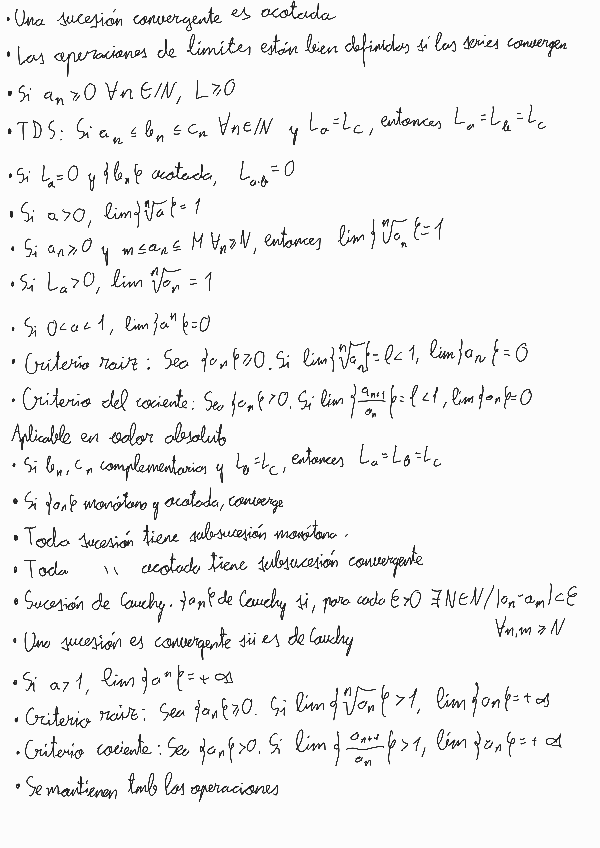 · Una sucesión convergente es acotada
· Las operaciones de límites están bien definidas si las series convergen
· Si aₙ ≥ 0 ∀n ∈ ℕ, L ≥ 0
· TDS: Si aₙ ≤ bₙ ≤ cₙ ∀n ∈ ℕ y Lₐ = L_c, entonces Lₐ = L_b = L_c
· Si Lₐ = 0 y {bₙ} acotada, L_{a·b} = 0
· Si a > 0, lim{ⁿ√a} = 1
· Si aₙ ≥ 0 y m ≤ aₙ ≤ M ∀n ≥ N, entonces lim{ⁿ√aₙ} = 1
· Si Lₐ > 0, lim ⁿ√aₙ = 1
· Si 0 < a < 1, lim{aⁿ} = 0
· Criterio raiz: Sea {aₙ} ≥ 0. Si lim{ⁿ√aₙ} = l < 1, lim{aₙ} = 0
· Criterio del cociente: Sea {aₙ} > 0. Si lim{aₙ₊₁/aₙ} = l < 1, lim{aₙ} = 0
Aplicable en valor absoluto
· Si bₙ, cₙ complementarias y L_b = L_c, entonces Lₐ = L_b = L_c
· Si {aₙ} monótona y acotada, converge
· Toda sucesión tiene subsucesión monótona.
· Toda \\ acotada tiene subsucesión convergente
· Sucesión de Cauchy. {aₙ} de Cauchy si, para cada ε > 0 ∃N ∈ ℕ / |aₙ - aₘ| < ε
∀n,m ≥ N
· Una sucesión es convergente sii es de Cauchy
· Si a > 1, lim{aⁿ} = +∞
· Criterio raiz: Sea {aₙ} ≥ 0. Si lim{ⁿ√aₙ} > 1, lim{aₙ} = +∞
· Criterio cociente: Sea {aₙ} > 0. Si lim{aₙ₊₁/aₙ} > 1, lim{aₙ} = +∞
· Se mantienen tmb las operaciones